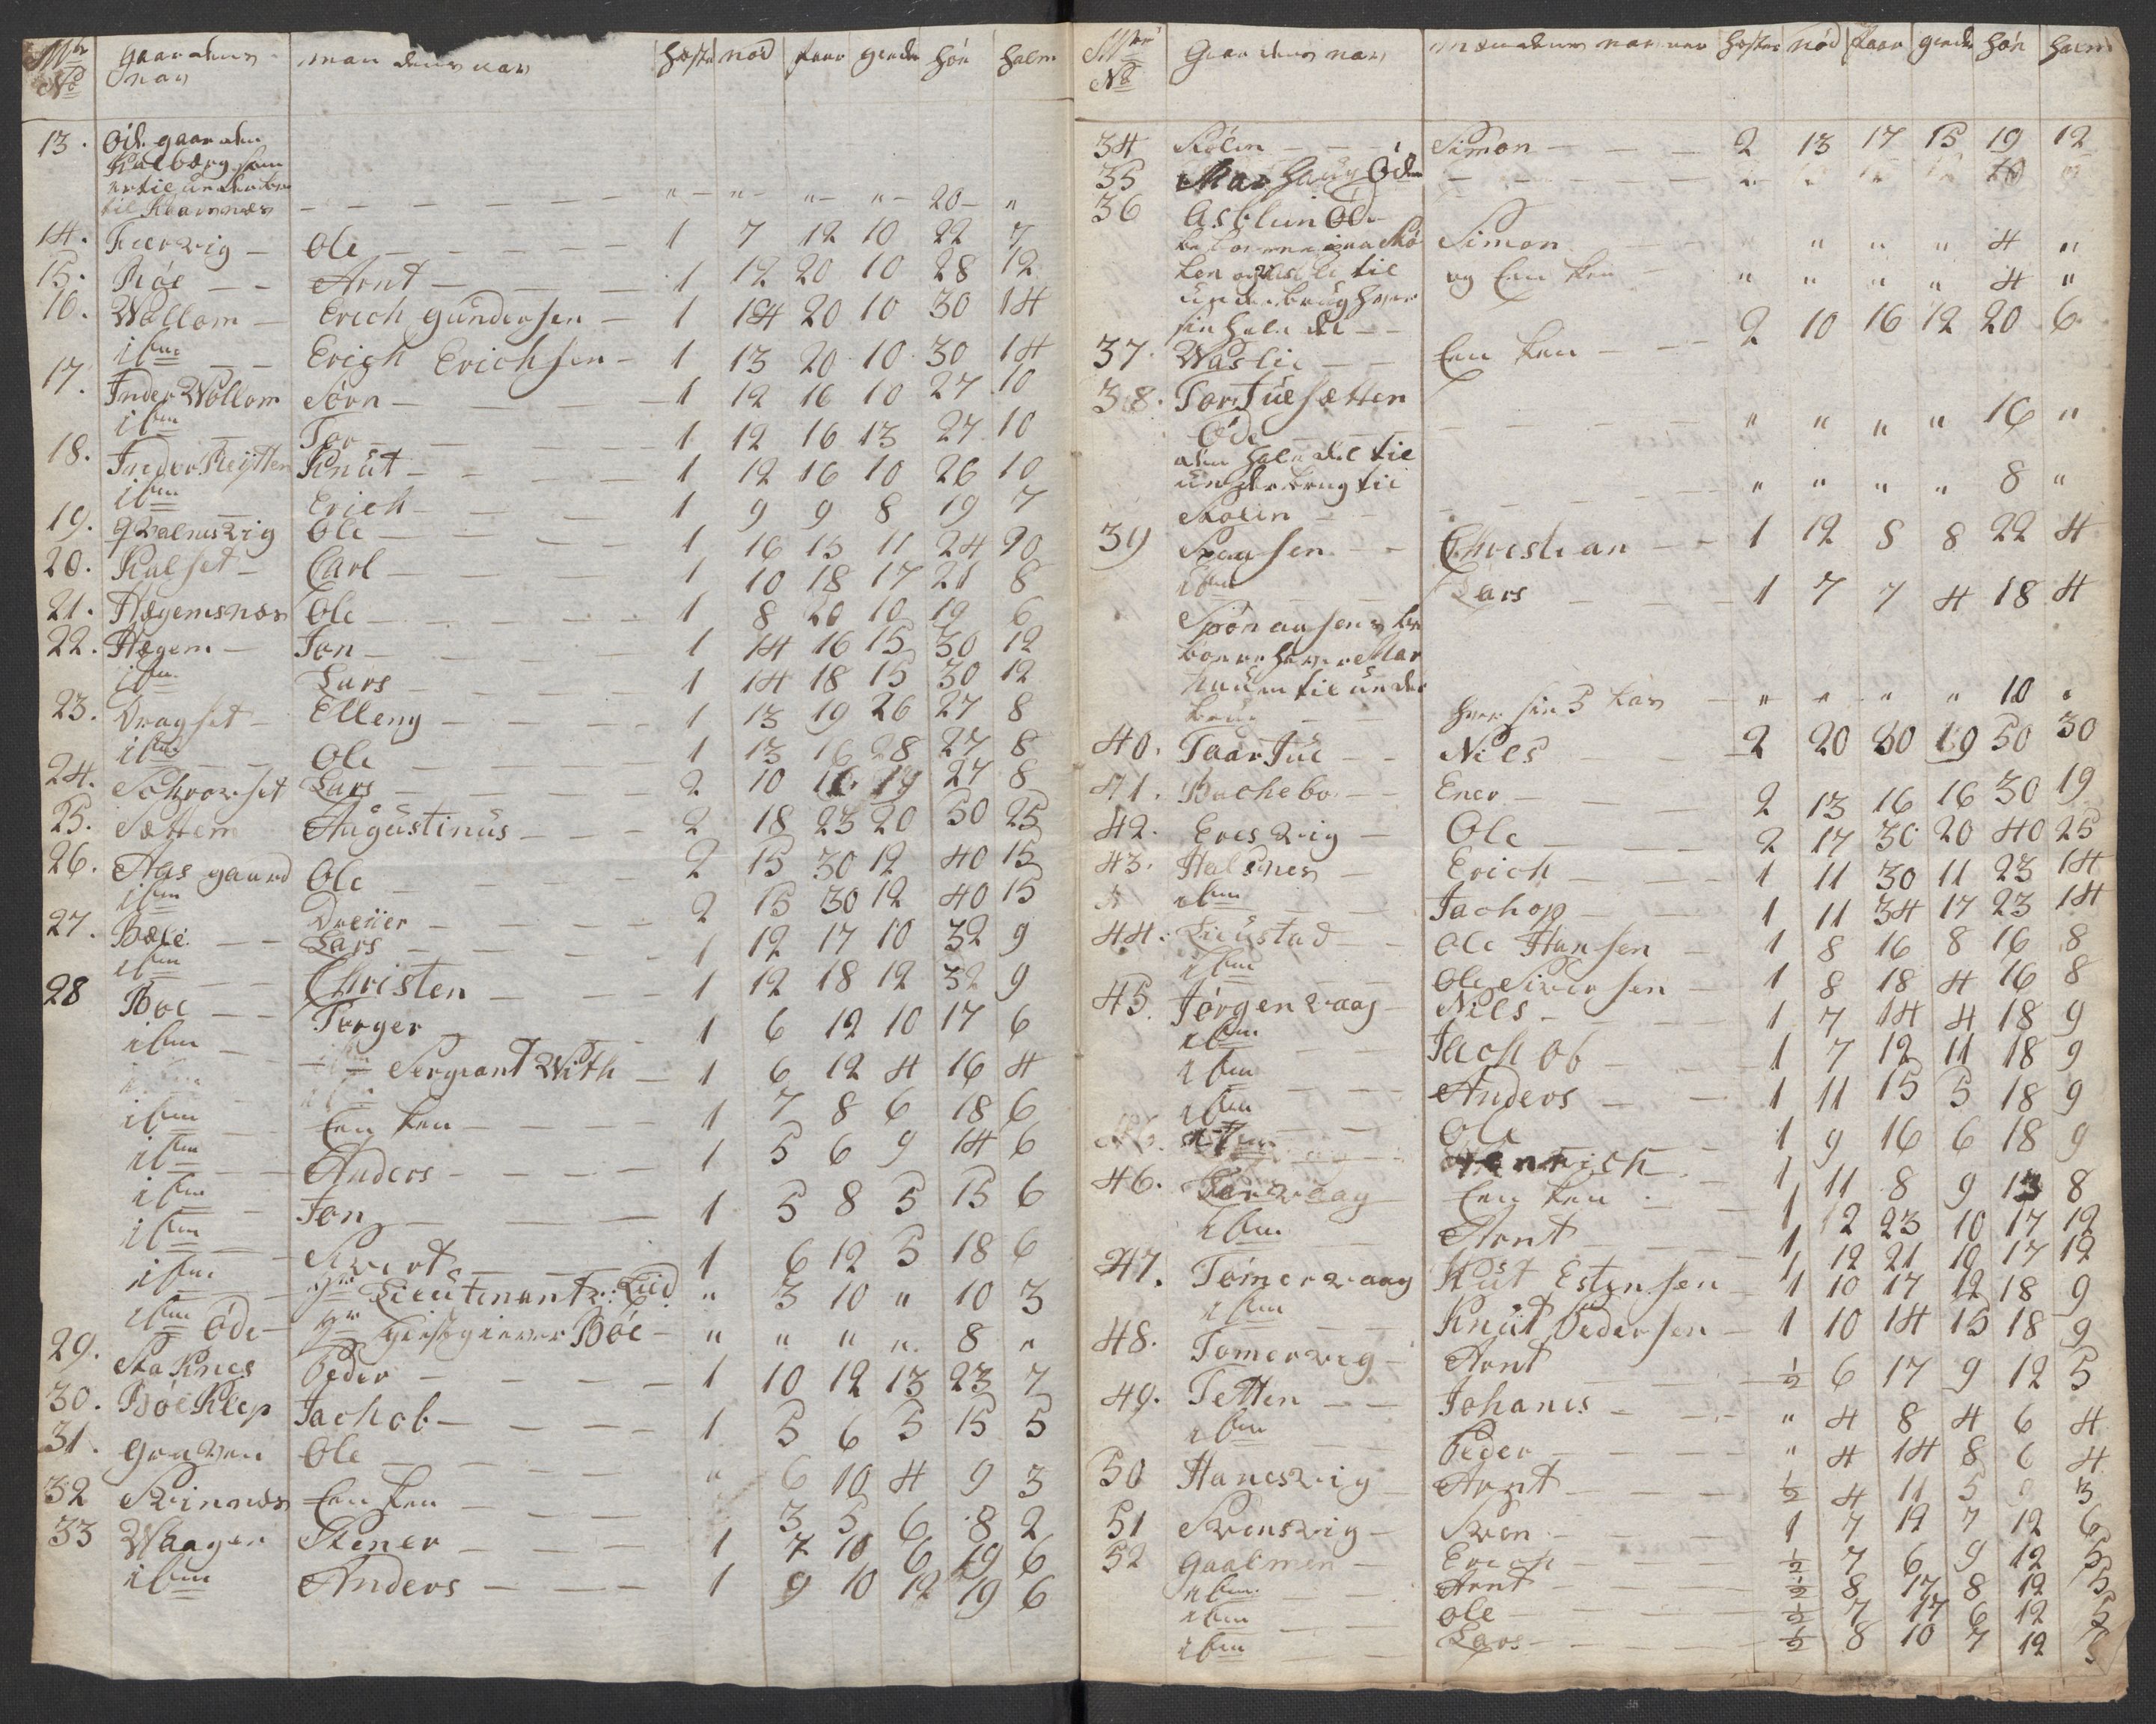 Mtr No gaardens nav mandens nav heste nød faar gieder høe halm
13. Öde gaarden
Kalberg som
er til underbr
til Kvarnnæs — — — — — " " " " 20 "
14. Fuervig — Ole — — — 1 7 12 10 22 7
15. Röe — — Arnt — — — 1 12 20 10 28 12
16. Wollom — Erich gundersen — 1 14 20 10 30 14
ibm — Erich Erichsen — 1 13 20 10 30 14
17. Inder Wollom Sörn — — — 1 12 16 10 27 10
ibm — Tor — — — 1 12 16 13 27 10
18. Inder Reijtten Knut — — 1 12 16 10 26 10
ibm — Erich — — — 1 9 9 8 19 7
19. qvalnesvig Ole — — — 1 16 15 11 24 20
20. Kulset — Carl — — — 1 10 18 17 21 8
21. Hægemsnæs Ole — — — 1 8 20 10 19 6
22. Hægem — Jon — — — 1 14 16 15 30 12
ibm — Lars — — — 1 14 18 15 30 12
23. Dragset — Elleng — — — 1 13 19 26 27 8
ibm — Ole — — — 1 13 16 28 27 8
24. Lars — — — 2 10 16 19 27 8
25. Sættem Augustinus — — — 2 18 23 20 50 25
26. Aas gaard Ole — — — 2 15 30 12 40 15
ibm — — 2 15 30 12 40 15
27. Bæle — — Lars — — — 1 12 17 10 32 9
ibm — — Christen — — — 1 12 18 12 32 9
28 Boe — — Torger — — — 1 6 12 10 17 6
ibm — Sergiant With — 1 6 12 4 16 4
ibm — Een ken — — — 1 7 8 6 18 6
ibm — Anders — — — 1 5 6 9 14 6
ibm — Jon — — — 1 5 8 5 15 6
ibm — Sivert — — — 1 6 12 5 18 6
ibm — Hr Lieutenant v: Lud " 3 10 " 10 3
ibm Öde — Hr giestgiever Böe — " " " " 8 "
29. Staknes Peder — — — 1 10 12 13 23 7
30. Böeklep Jachob — — — 1 5 6 5 15 5
31. graven Ole — — — " 6 10 4 9 3
32 Svinnæs Een ken — — — 3 5 6 8 2
33 Waagen Stener — — — 1 7 10 6 19 6
ibm Anders — — — 1 9 10 12 19 6
Mtr No Gaardens nav mandens navner heste nød faar gieder høe halm
34 Stölen — — Simon — — — 2 13 17 15 19 12
35 Marhaug Öde — — — " " " " 10 "
36 Asblien Öde
Simon " " " 4 "
til og Een ken — " " " " 4 "
underbrug hver
sin halve del — —
37. Waslie — — Een ken — — — 2 10 16 12 20 6
38. Tor Tue sætter
Öde — — — — " " " " 16 "
den halve del til
underbrug til — — — " " " " 8 "
Stölen — —
39 — — Christian — — 1 12 8 8 22 4
ibm — Lars — — — 1 7 7 4 18 4
til under
brug — — hver sin 5 — " " " " 10 "
40. Taar Tue — — Nils — — 2 20 30 19 50 30
41. Bachebo — — Ener — — — 2 13 16 16 30 19
42. Eresvig — Ole — — — 2 17 30 20 40 25
43. Halsnes — Erich — — — 1 11 30 11 23 14
ibm — Jachop — — — 1 11 34 17 23 14
44. Liustad — — Ole Hansen — 1 8 16 8 16 8
ibm — Ole Siversen — 1 8 18 4 16 8
45. Jörgenvaag — Nils — — — 1 7 14 4 18 9
ibm — — Jachob — — — 1 7 12 11 18 9
ibm — — Anders — — — 1 11 15 5 18 9
ibm — — Ole — — — 1 9 16 6 18 9
Henrich — 1 11 8 9 13 8
46. Een ken — — 1 12 23 10 17 12
ibm — Arnt — — — 1 12 21 10 17 12
47. Tömervaag Knut Estensen — 1 10 17 12 18 9
ibm — Knut Pedersen — 1 10 14 15 18 9
48. Tomervig — Arnt — — — ½ 6 17 9 12 5
49. Tetten — — Johanes — — — " 4 8 4 6 4
ibm — Peder — — — " 4 14 8 6 4
50 Hanesvig — Arnt — — — ½ 4 11 5 3
51 Svensvig — Sven — — — 1 7 12 7 12 6
52 Gaalmen — Erich — — — ½ 7 6 9 12 5
ibm — — Arnt — — — ½ 8 17 8 12 5
ibm — — Ole — — — ½ 7 17 6 12 5
ibm — — Lars — — — ½ 8 10 7 12